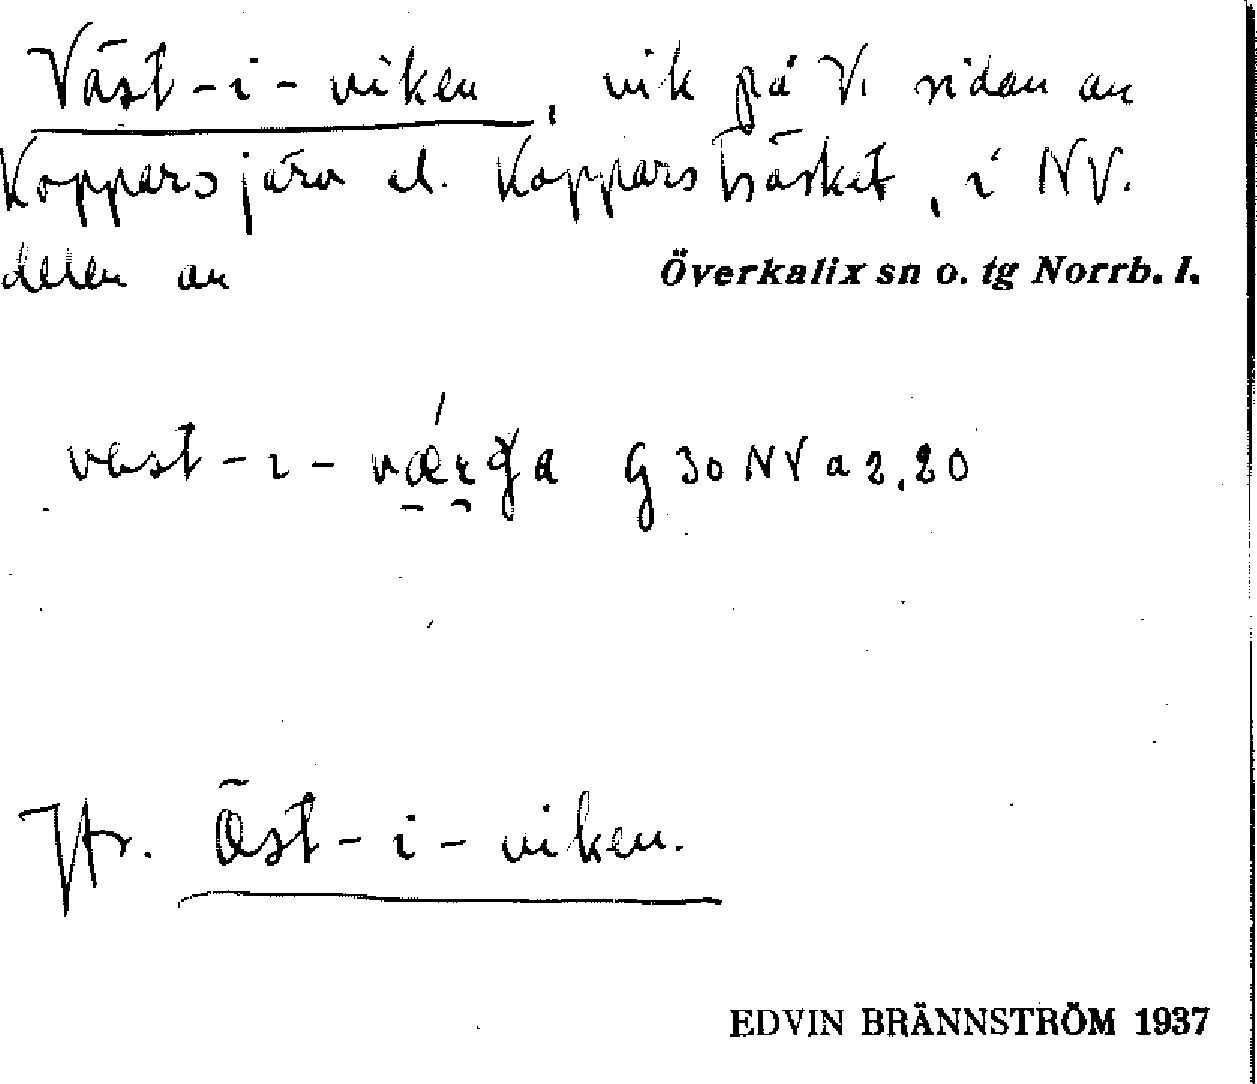 Väst-i-viken, vik på V. sidan av
Kopparsjärv el. Kopparsträsket, i NV.
delen av Överkalix sn o. tg Norrb. l.
vast-ı-
G 30 NV a 2, 20
Jfr. Öst-i-viken.
EDVIN BRÄNNSTRÖM 1937